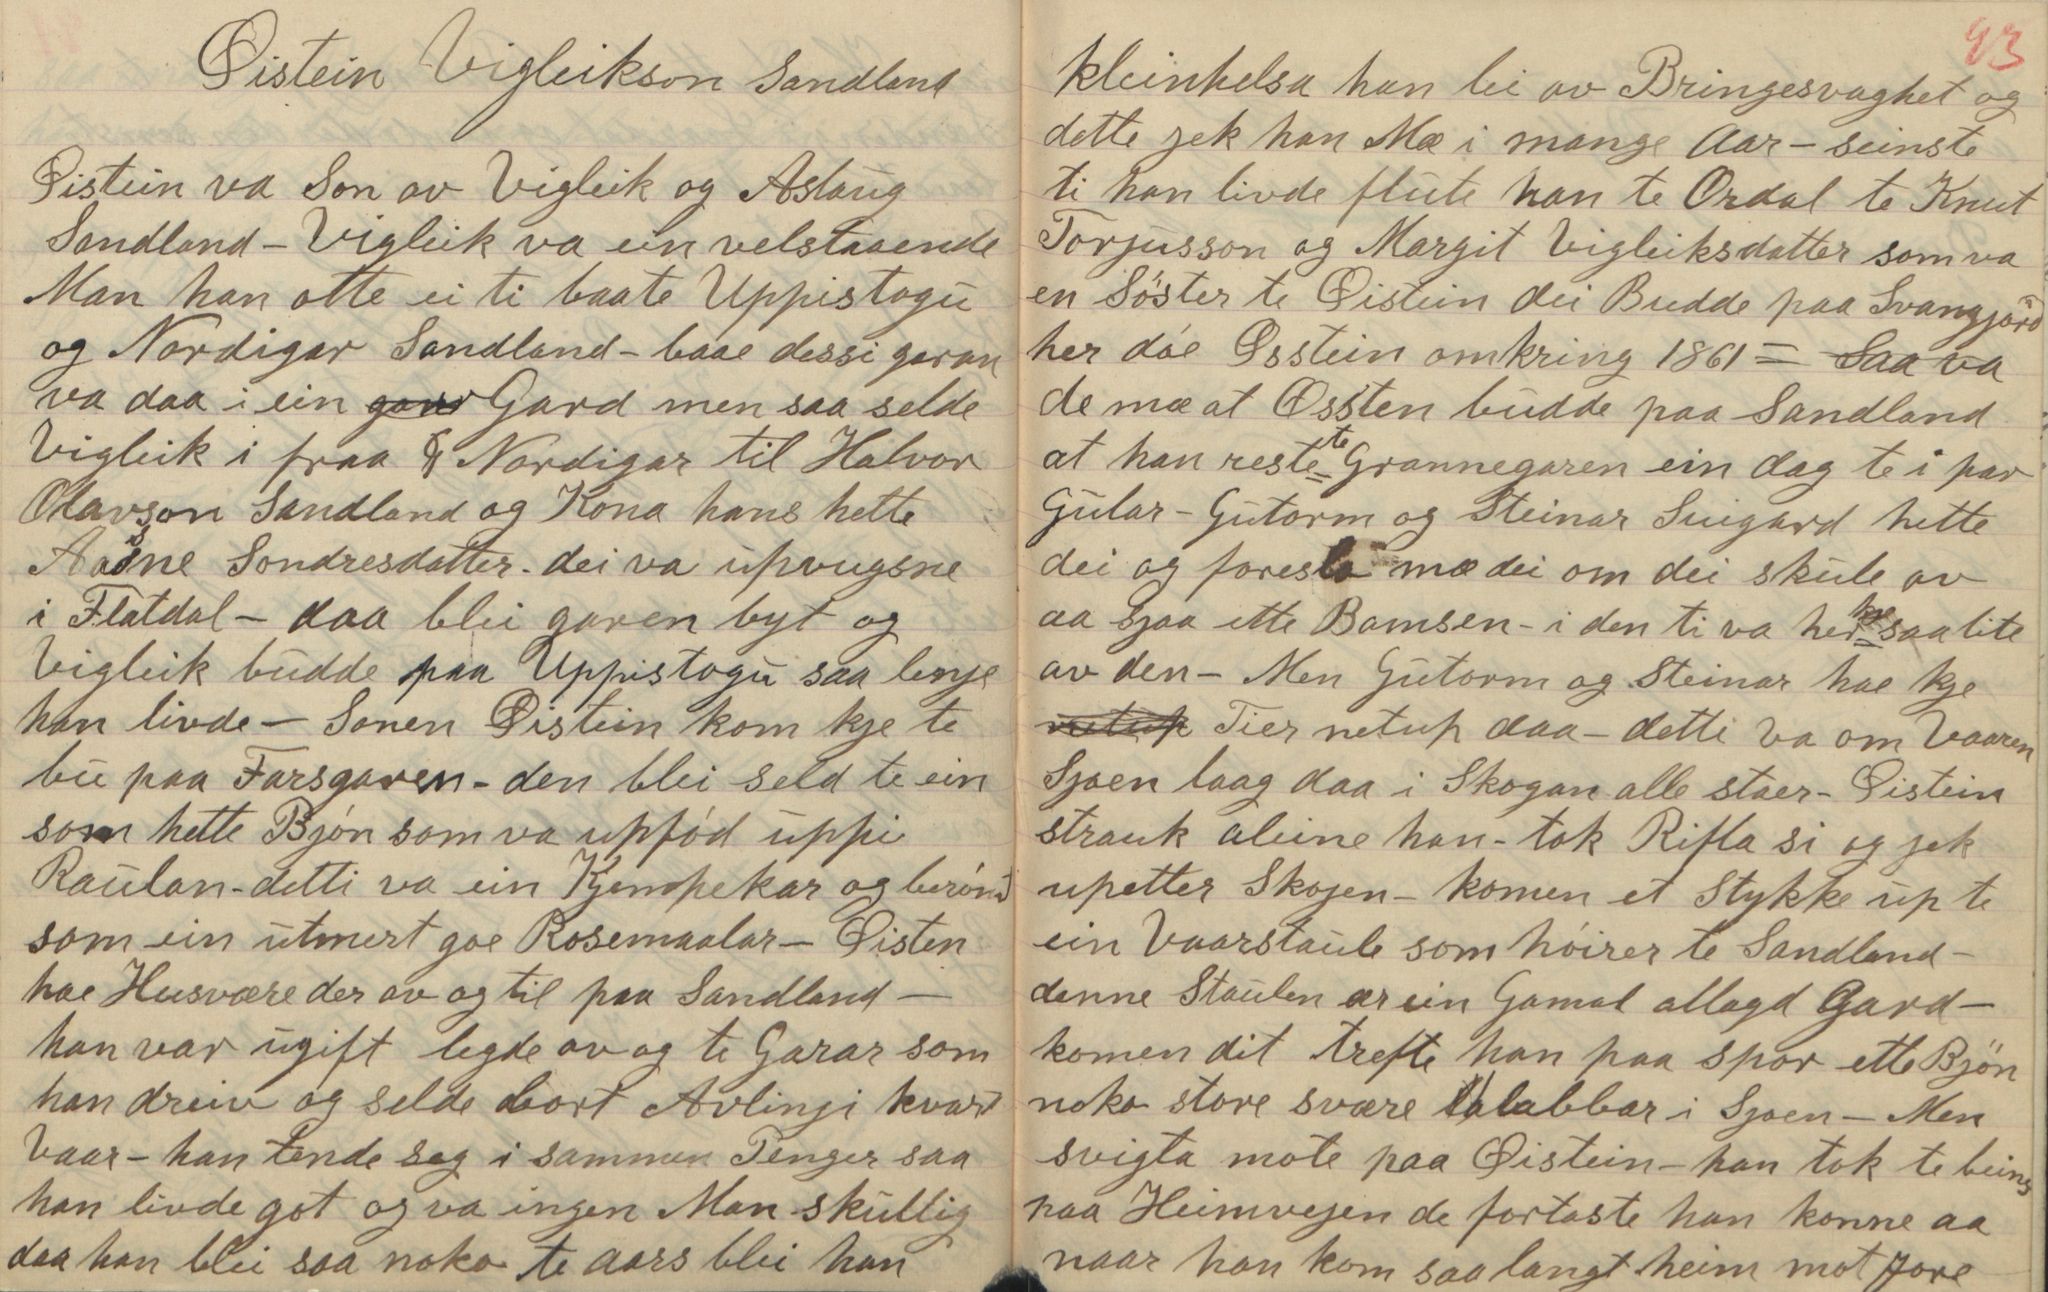 Øistein Vigleikson Sandland
Øistein va Son av Vigleik og Aslaug
Sandland – Vigleik va ein velstaaende
Man han otte ei ti baate Uppistogu
og Nordigar Sandland – baae dessi garan
va daa i ein gaar Gard men saa selde
Vigleik i fraa Nordigar til Halvor
Olavson Sandland og Kona hans hette
Aasne Sondresdatter. dei va upvugsne
i Flatdal – daa blei garen byt og
Vigleik budde paa Uppistogu saa lenje
han livde – Sonen Øistein kom kje te
bu paa Farsgaren – den blei seld te ein
som hette Bjón som va upfód uppi
Raulan – detti va ein Kjempekar og berómt
som ein utmert goe Rosemaalar – Øisten
hae Husvære der av og til paa Sandland –
han var ugift legde av og te Garar som
han dreiv og selde bort Avlinji kvart
Vaar – han tende seg i sammen Penger saa
han livde got og va ingen Man skullig
daa han blei saa noko te aars blei han
93
kleinhelsa han lei av Bringesvaghet og
dette jek han Mæ i mange Aar – seinste
ti han livde flute han te Ordal te Knut
Torjusson og Margit Vigleiksdatter som va
en Söster te Øistein dei Budde paa Svangjord
her dóe Øsstein omkring 1861 = Saa va
de mæ at Øssten budde paa Sandland
at han reste te Grannegaren ein dag te i par
Gular – Gutorm og Steinar Suigard hette
dei og foreslo mæ dei om dei skule av
aa sjaa ette Bamsen – i den ti va her kje saa lite
av den – Men Gutorm og Steinar hae kje
netup Tier netup daa – detti va om Vaaren
Sjoen laag daa i Skogan alle staer – Øistein
strauk aleine han – tok Rifla si og jek
upetter Skojen – komen et Stykke up te
ein Vaarstaule som hóirer te Sandland –
denne Staulen ær ein Gamal allagd Gard –
komen dit trefte han paa spor ette Bjön
noko store svære labbar i Sjoen – Men
svigta mote paa Øistein – han tok te beins
paa Heimvejen de fortaste han konne aa
naar han kom saa langt heim mot Jore